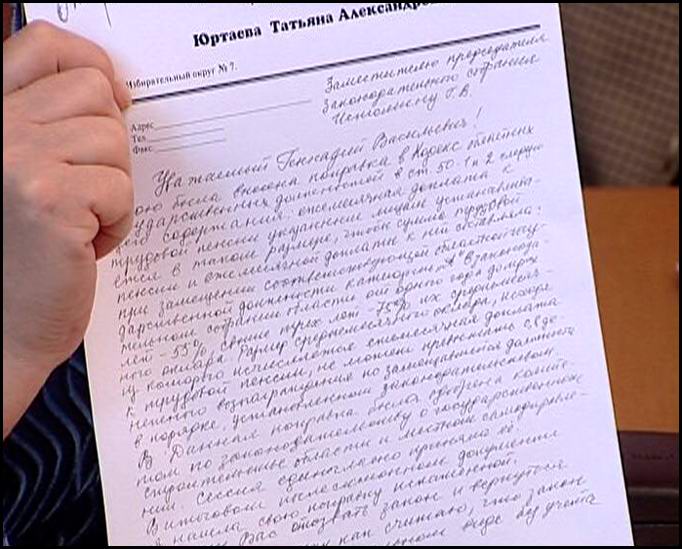 Юртаева Татьяна Александро
Избирательный округ № 7.
Заместителю председателя
Законодательного собрания
Исполинову Г.В.
Адрес
Тел
Факс
Уважаемый Геннадий Васильевич!
ою была внесена поправка в Кодекс
ударственных должностей в ст. 50-1 п 2
содержания: ежемесячная доплата к
трудовой пенсии указанным лицам устанавлива-
ется в таком размере, чтобы сумма трудовой
пенсии и ежемесячной доплаты к ней составляла:
при замещении соответствующей областной госу-
дарственной должности категории "А" в законода-
тельном собрании области от одного года до трех
лет - 55%, свыше трех лет - 75% их среднемесяч-
ного оклада. Размер среднемесячного оклада, исходя
из которого исчисляется ежемесячная доплата
к трудовой пенсии, не может превышать
нежного вознаграждения по замещаемой должности
в порядке, установленном законодательством.
Данная поправка была одобрена комите-
том по законодательству о государственном
строительстве области и местном самоуправле-
нии. Сессия единогласно приняла её.
В итоговом документе
я нашла свою поправку искаженной.
Вас отозвать закон и вернуться
как считаю, что закон
виде без учета